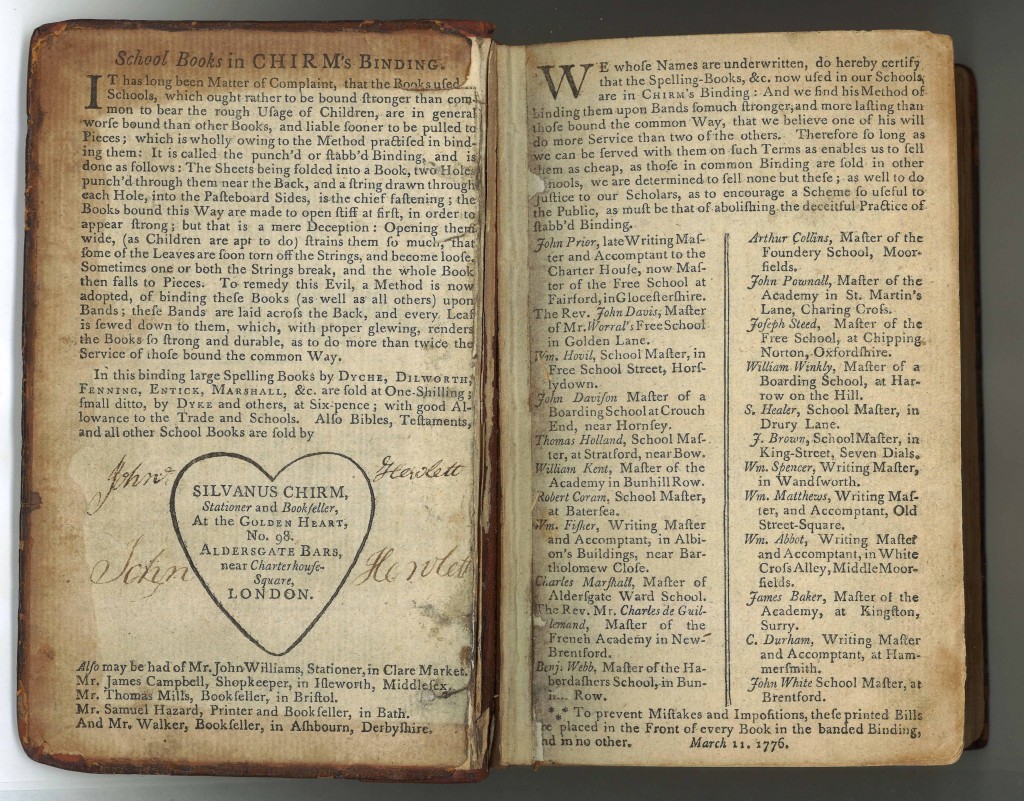 School Books in CHIRM's BINDING.
IT has long been Matter of Complaint, that the Books uſed
Schools, which ought rather to be bound ſtronger than com-
mon to bear the rough Uſage of Children, are in general
worſe bound than other Books, and liable ſooner to be pulled to
Pieces; which is wholly owing to the Method practiſed in bind-
ing them: It is called the punch'd or ſtabb'd Binding, and is
done as follows: The Sheets being folded into a Book, two Holes
punch'd through them near the Back, and a ſtring drawn through
each Hole, into the Paſteboard Sides, is the chief faſtening; the
Books bound this Way are made to open ſtiff at firſt, in order to
appear ſtrong; but that is a mere Deception: Opening them
wide, (as Children are apt to do) ſtrains them ſo much, that
ſome of the Leaves are ſoon torn off the Strings, and become looſe,
Sometimes one or both the Strings break, and the whole Book
then falls to Pieces. To remedy this Evil, a Method is now
adopted, of binding theſe Books (as well as all others) upon
Bands; theſe Bands are laid acroſs the Back, and every Leaf
is ſewed down to them, which, with proper glewing, renders
the Books ſo ſtrong and durable, as to do more than twice the
Service of thoſe bound the common Way.
In this binding large Spelling Books by DYCHE, DILWORTH,
FENNING, ENTICK, MARSHALL, &c. are ſold at One-Shilling;
ſmall ditto, by DYKE and others, at Six-pence; with good Al-
lowance to the Trade and Schools. Alſo Bibles, Teſtaments,
and all other School Books are ſold by
John Hewlett
SILVANUS CHIRM,
Stationer and Bookſeller,
At the GOLDEN HEART,
No. 98.
ALDERSGATE BARS,
near Charterhouſe-
Square,
LONDON.
John Hewlett
Alſo may be had of Mr. John Williams, Stationer, in Clare Market.
Mr. James Campbell, Shopkeeper, in Iſleworth, Middleſex.
Mr. Thomas Mills, Bookſeller, in Briſtol.
Mr. Samuel Hazard, Printer and Bookſeller, in Bath.
And Mr. Walker, Bookſeller, in Aſhbourn, Derbyſhire.
WE whoſe Names are underwritten, do hereby certify
that the Spelling-Books, &c. now uſed in our Schools,
are in CHIRM's Binding: And we find his Method of
binding them upon Bands ſomuch ſtronger, and more laſting than
thoſe bound the common Way, that we believe one of his will
do more Service than two of the others. Therefore ſo long as
we can be ſerved with them on ſuch Terms as enables us to ſell
them as cheap, as thoſe in common Binding are ſold in other
hools, we are determined to ſell none but theſe; as well to do
Juſtice to our Scholars, as to encourage a Scheme ſo uſeful to
the Public, as muſt be that of aboliſhing the deceitful Practice of
ſtabb'd Binding.
John Prior, late Writing Maſ-
ter and Accomptant to the
Charter Houſe, now Maſ-
ter of the Free School at
Fairford, in Gloceſterſhire.
The Rev. John Davis, Maſter
of Mr. Worral's Free School
in Golden Lane.
Wm. Hovil, School Maſter, in
Free School Street, Horſ-
lydown.
John Daviſon Maſter of a
Boarding School at Crouch
End, near Hornſey.
Thomas Holland, School Maſ-
ter, at Stratford, near Bow.
William Kent, Maſter of the
Academy in Bunhill Row.
Robert Coram, School Maſter,
at Baterſea.
Wm. Fiſher, Writing Maſter
and Accomptant, in Albi-
on's Buildings, near Bar-
tholomew Cloſe.
Charles Marſhall, Maſter of
Alderſgate Ward School.
The Rev. Mr. Charles de Guil-
lemand, Maſter of the
French Academy in New-
Brentford.
Benj. Webb, Maſter of the Ha-
berdaſhers School, in Bun-
Row.
Arthur Collins, Maſter of the
Foundery School, Moor-
fields.
John Pownall, Maſter of the
Academy in St. Martin's
Lane, Charing Croſs.
Joſeph Steed, Maſter of the
Free School, at Chipping
Norton, Oxfordſhire.
William Winkly, Maſter of a
Boarding School, at Har-
row on the Hill.
S. Healer, School Maſter, in
Drury Lane.
J. Brown, School Maſter, in
King-Street, Seven Dials.
Wm. Spencer, Writing Maſter,
in Wandſworth.
Wm. Matthews, Writing Maſ-
ter, and Accomptant, Old
Street-Square.
Wm. Abbot, Writing Maſter
and Accomptant, in White
Croſs Alley, Middle Moor-
fields.
James Baker, Maſter of the
Academy, at Kingſton,
Surry.
C. Durham, Writing Maſter
and Accomptant, at Ham-
merſmith.
John White School Maſter, at
Brentford.
*** To prevent Miſtakes and Impoſitions, theſe printed Bills
are placed in the Front of every Book in the banded Binding,
and in no other. March 11. 1776.